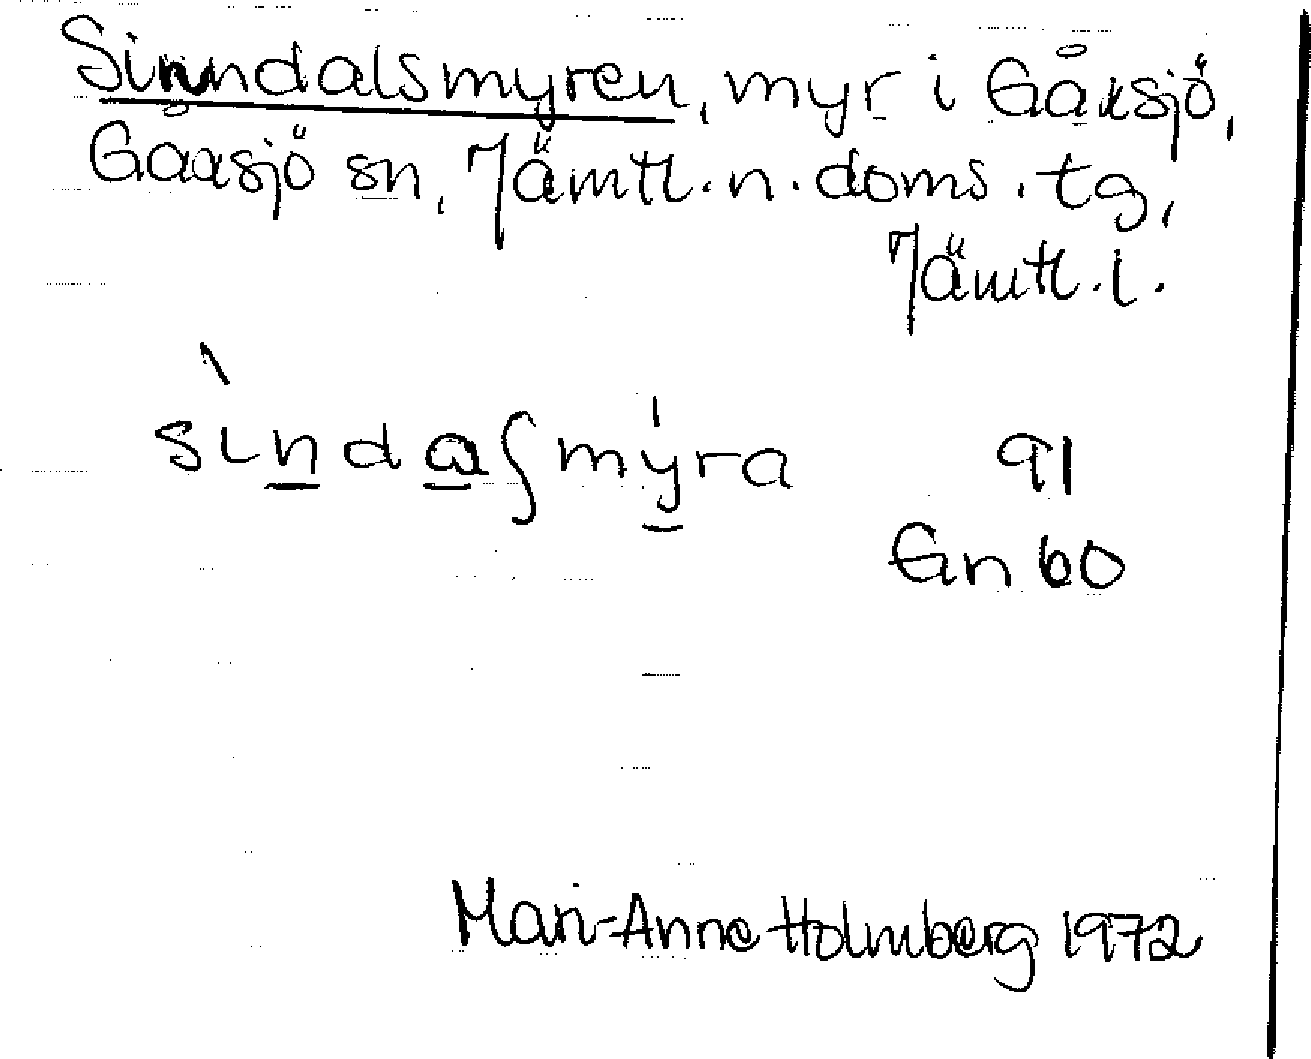 Sinndalsmyren, myr i Gåxsjö,
Gåxsjö sn, Jämtl. n. doms. tg,
Jämtl. l.
sìndaʃmýra 91
Gn 60
Mari-Anne Holmberg 1972